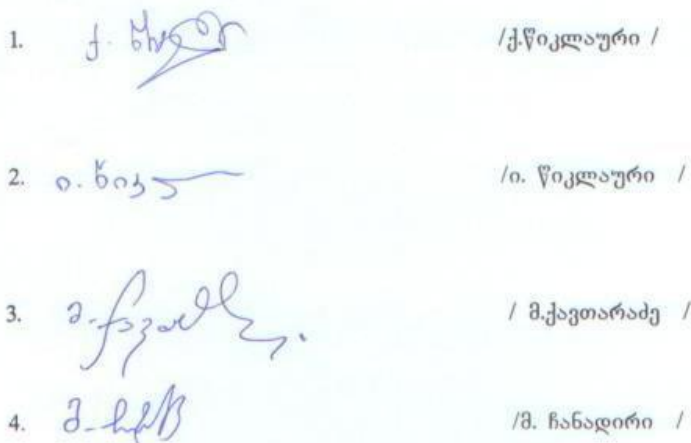 1. ქ. /ქ.წიკლაური /
2. ი. წიკ /ი. წიკლაური /
3. მ. / მ.ქავთარაძე /
4. მ. /მ. ჩანადირი /